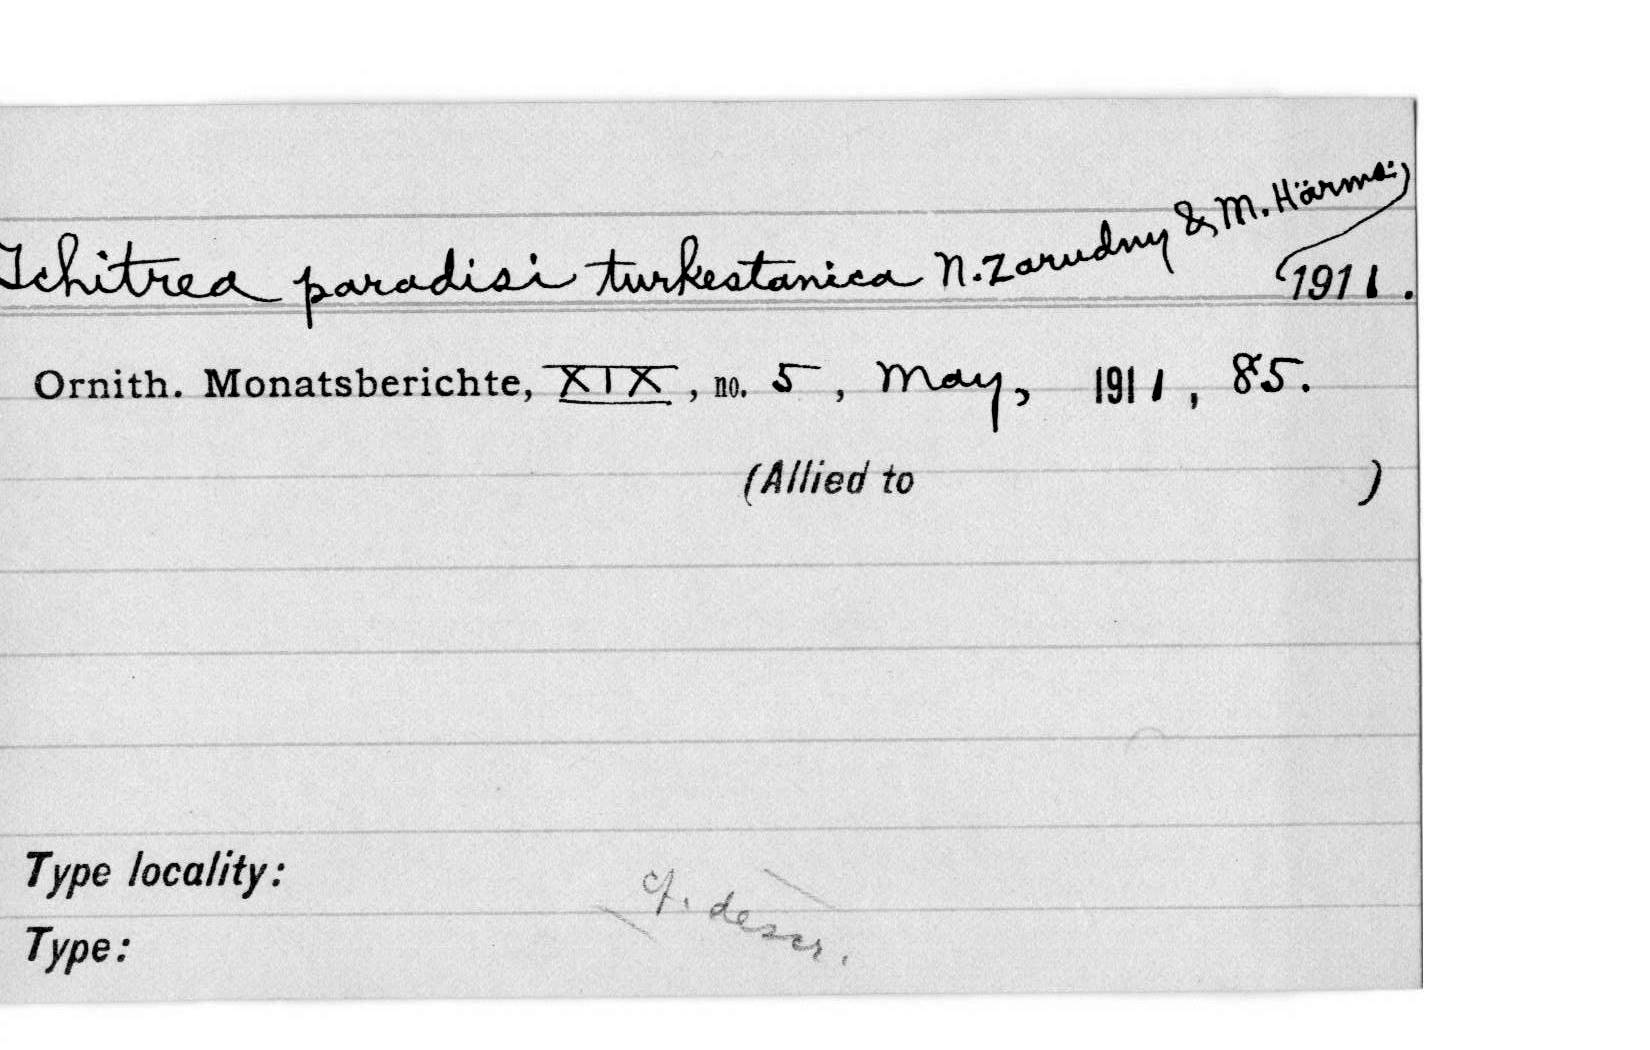 Tchitrea paradisi turkestanica N. Zarudny & M. Härms:
1911.
Ornith. Monatsberichte, XIX, no. 5, May, 1911, 85.
(Allied to )
Type locality:
cf. descr.
Type: